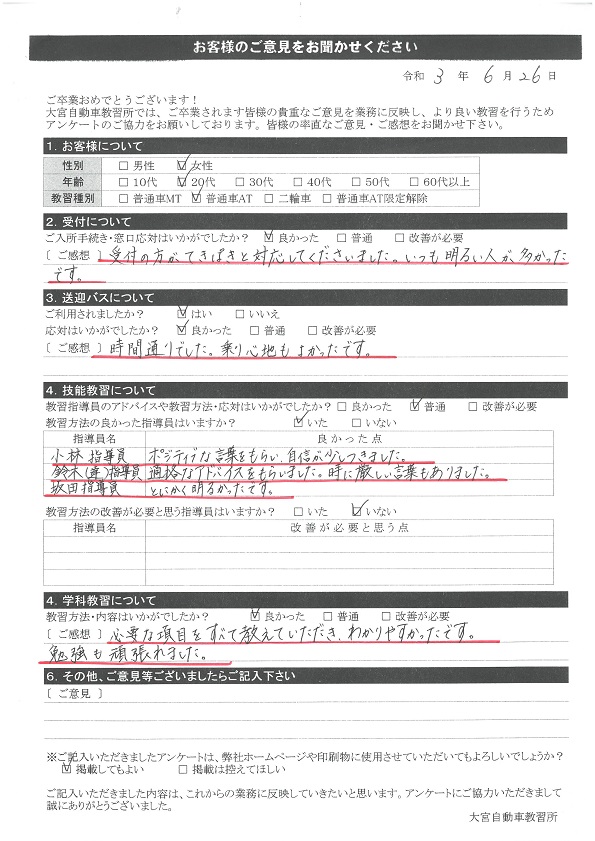 お客様のご意見をお聞かせください
令和 3 年 6 月 26 日
ご卒業おめでとうございます！
大宮自動車教習所では、ご卒業されます皆様の貴重なご意見を業務に反映し、より良い教習を行うため
アンケートのご協力をお願いしております。皆様の率直なご意見・ご感想をお聞かせ下さい。
1. お客様について
性別 □ 男性 ☑ 女性
年齢 □ 10代 ☑ 20代 □ 30代 □ 40代 □ 50代 □ 60代以上
教習種別 □ 普通車MT ☑ 普通車AT □ 二輪車 □ 普通車AT限定解除
2. 受付について
ご入所手続き・窓口応対はいかがでしたか？ ☑ 良かった □ 普通 □ 改善が必要
〔 ご感想 〕 受付の方がてきぱきと対応してくださいました。いつも明るい人が多かった
です。
3. 送迎バスについて
ご利用されましたか？ ☑ はい □ いいえ
応対はいかがでしたか？ ☑ 良かった □ 普通 □ 改善が必要
〔 ご感想 〕 時間通りでした。乗り心地もよかったです。
4. 技能教習について
教習指導員のアドバイスや教習方法・応対はいかがでしたか？ □ 良かった ☑ 普通 □ 改善が必要
教習方法の良かった指導員はいますか？ ☑ いた □ いない
指導員名 良かった点
小林 指導員 ポジティブな言葉をもらい、自信が少しつきました。
鈴木(達)指導員 適格なアドバイスをもらいました。時に厳しい言葉もありました。
坂田指導員 とにかく明るかったです。
教習方法の改善が必要と思う指導員はいますか？ □ いた ☑ いない
指導員名 改善が必要と思う点
4. 学科教習について
教習方法・内容はいかがでしたか？ ☑ 良かった □ 普通 □ 改善が必要
〔 ご感想 〕 必要な項目をすべて教えていただき、わかりやすかったです。
勉強も頑張れました。
6. その他、ご意見等ございましたらご記入下さい
〔 ご意見 〕
※ご記入いただきましたアンケートは、弊社ホームページや印刷物に使用させていただいてもよろしいでしょうか？
☑ 掲載してもよい □ 掲載は控えてほしい
ご記入いただきました内容は、これからの業務に反映していきたいと思います。アンケートにご協力いただきまして
誠にありがとうございました。
大宮自動車教習所